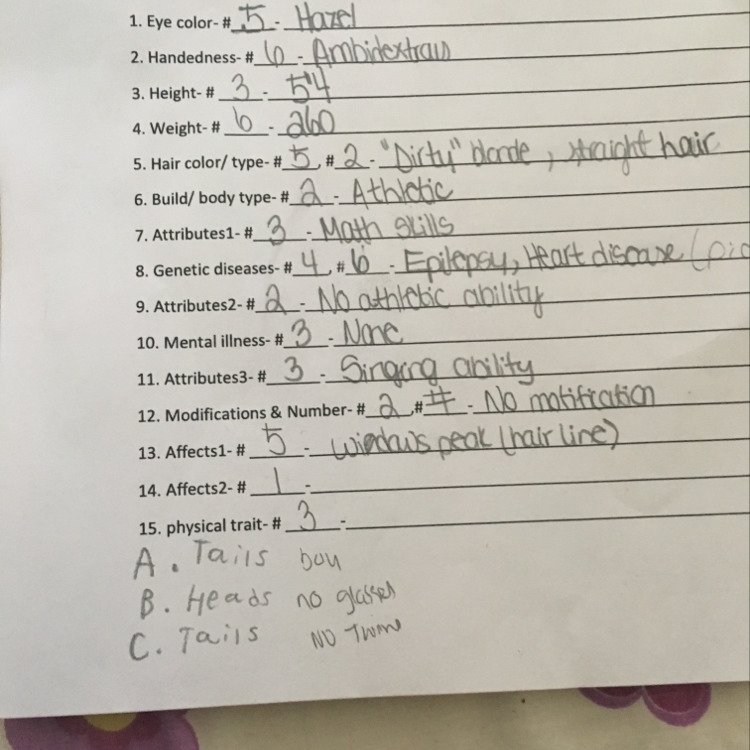 1. Eye color- # 5 - Hazel
2. Handedness- # 6 - Ambidextraus
3. Height- # 3 - 5'4
4. Weight- # 6 - 260
5. Hair color/ type- # 5, # 2 - "Dirty" blonde, straight hair
6. Build/ body type- # 2 - Athletic
7. Attributes1- # 3 - Math skills
8. Genetic diseases- # 4, # 6 - Epilepsy, Heart disease (
9. Attributes2- # 2 - No athletic ability
10. Mental illness- # 3 - None
11. Attributes3- # 3 - Singing ability
12. Modifications & Number- # 2, # # - No motification
13. Affects1- # 5 - Windows peak (hair line)
14. Affects2- # 1 -
15. physical trait- # 3 -
A. Tails boy
B. Heads no glasses
C. Tails NO